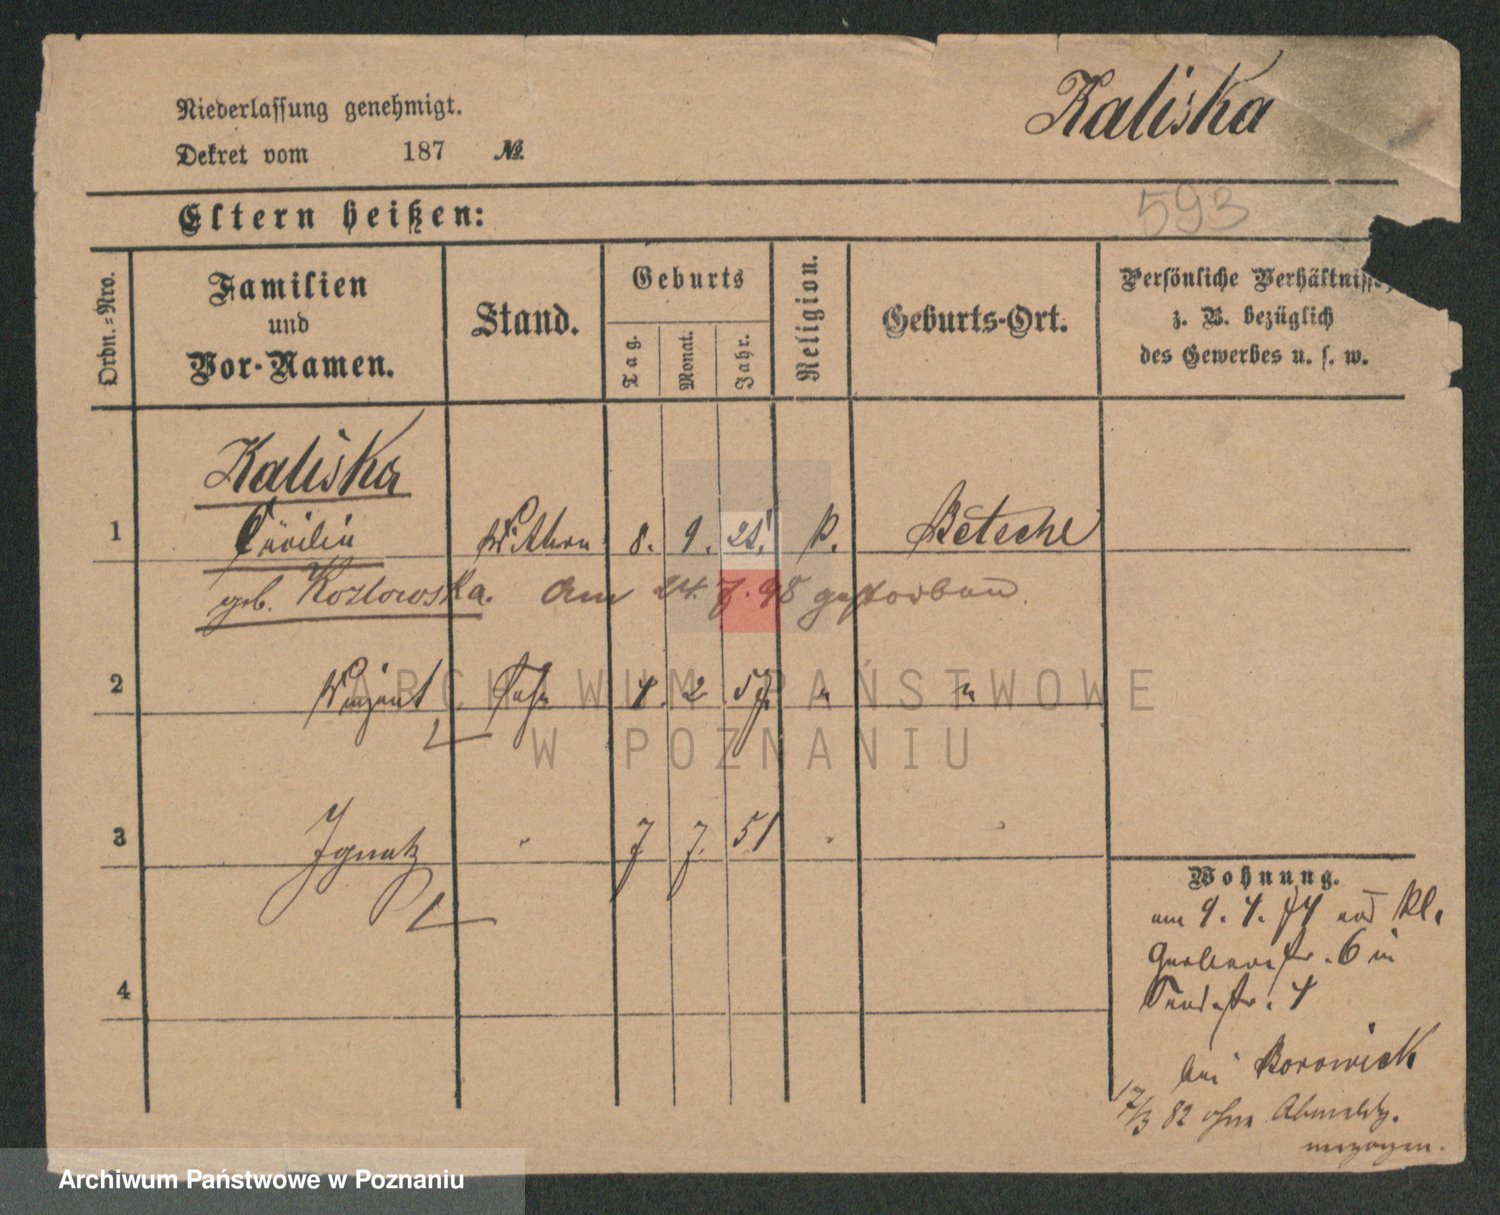 Kaliska
Niederlassung genehmigt.
Dekret vom 187 №
593
Eltern heißen:
Ordn.-Nro.
Familien
und
Vor-Namen.
Stand.
Geburts
Tag.
Monat.
Jahr.
Religion.
Geburts-Ort.
Persönliche Verhältnisse,
z. B. bezüglich
des Gewerbes u. s. w.
Kaliska
1 Cäcilie Wittwe 8. 9. 21. k. Betsche
geb. Kozlowska. Am 24. 7. 98 gestorben.
2 Vinzent Sohn 4. 2 57 " "
3 Ignatz " 7 7. 51 "
4
Wohnung.
am 9. 4. 74 von Kl.
Gerberstr. 6 in
Sandstr. 4
bei Borowicz
17/3 82 ohne Abmeldg.
verzogen.
ARCHIWUM PAŃSTWOWE
W POZNANIU
Archiwum Państwowe w Poznaniu